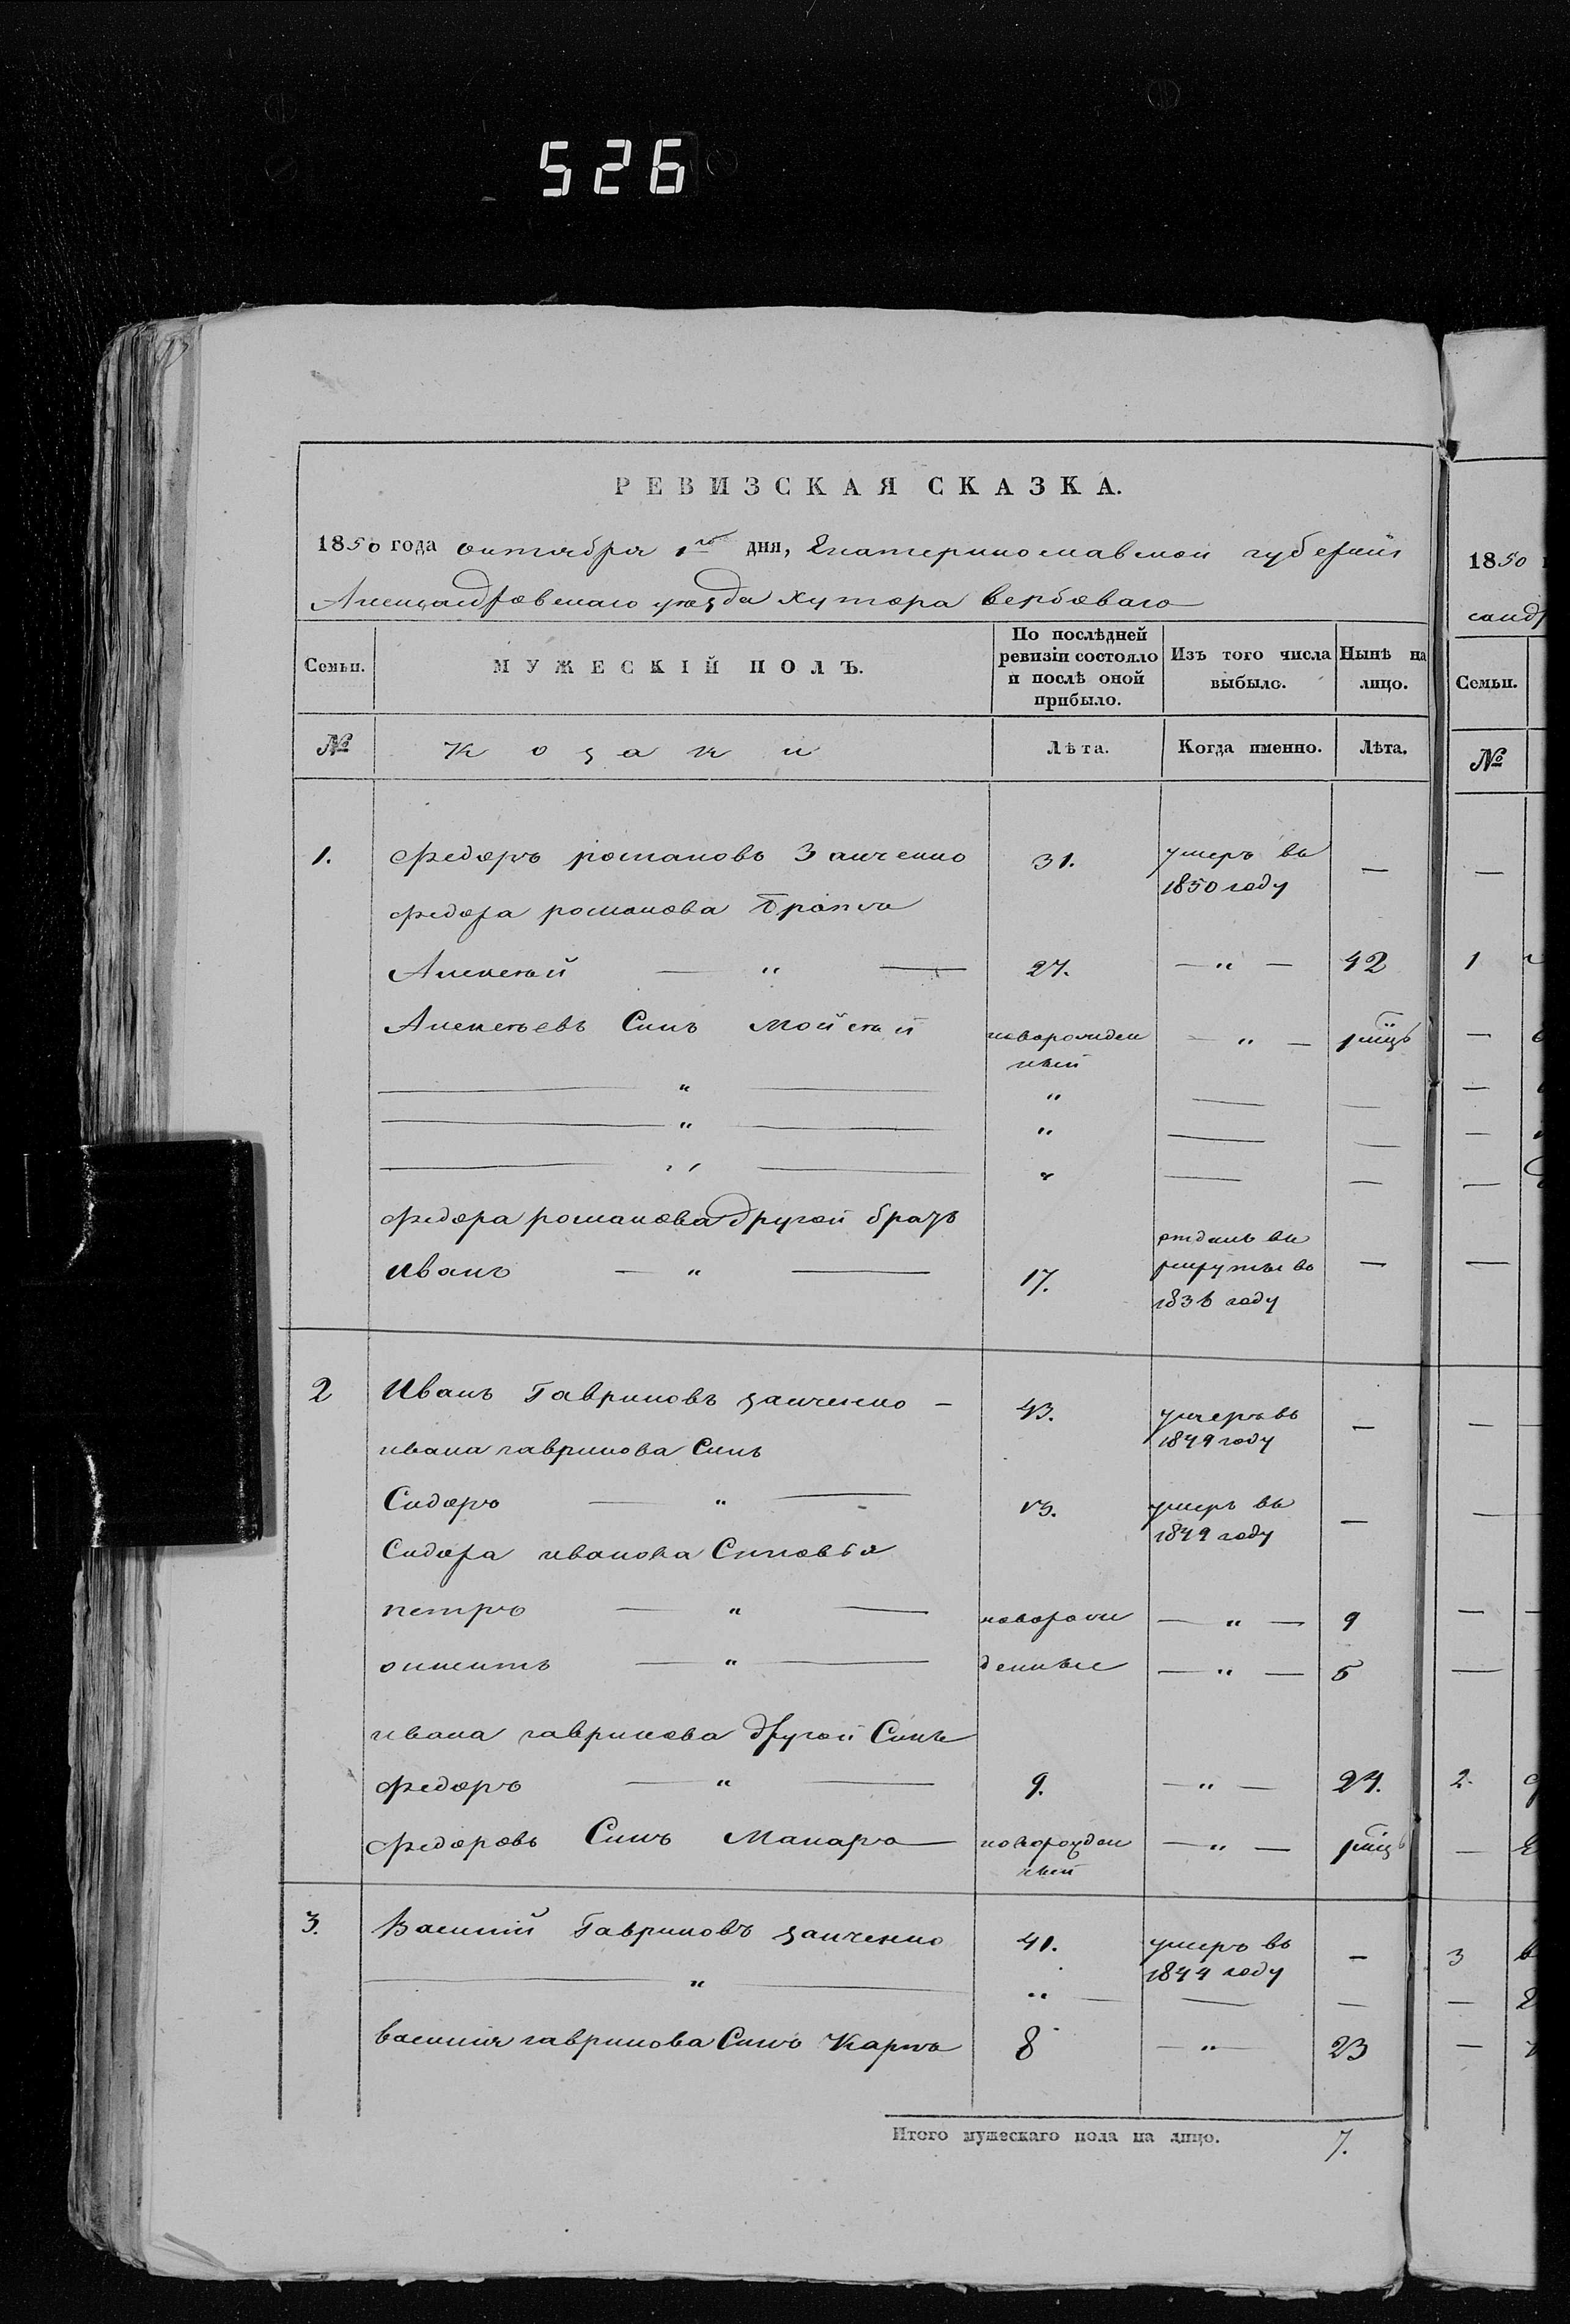 526
РЕВИЗСКАЯ СКАЗКА.
1850 года октября 1го дня, Екатеринославской губернии
Александровскаго уезда хутора вербоваго
Семьи.
МУЖЕСКІЙ ПОЛЪ.
По послѣдней ревизіи состояло и послѣ оной прибыло.
Изъ того числа выбыло.
Нынѣ на лицо.
№ Козаки Лѣта. Когда именно. Лѣта.
1. Федоръ романовъ Заиченко 31. умеръ въ 1850 году —
федора романова братья
Алексей — " — 27. — " — 42
Алексеевъ Синъ Мойсей новорожден ный — " — 1 мцъ
— " — " — —
— " — " — —
— " — " — —
федора романова другой братъ
Иванъ — " — 17. отданъ въ рекруты въ 1836 году —
2 Иванъ Гавриловъ заиченко — 43. умеръ въ 1849 году —
ивана гаврилова Синъ
Сидоръ — " — 13. умеръ въ 1849 году —
Сидора иванова Синовья
петръ — " — новорож — " — 9
— " — денные — " — 5
ивана гаврилова другой Синъ
федоръ — " — 9. — " — 24.
федоровъ Синъ Макаръ — новорожден ный — " — 1 мцъ
3. Василий Гавриловъ заиченко 41. умеръ въ 1844 году —
— " — " — — —
василия гаврилова Синъ Карпъ 8 — " — 23
Итого мужескаго пола на лицо. 7.
1850
санд
Семьи.
№
1
2.
3